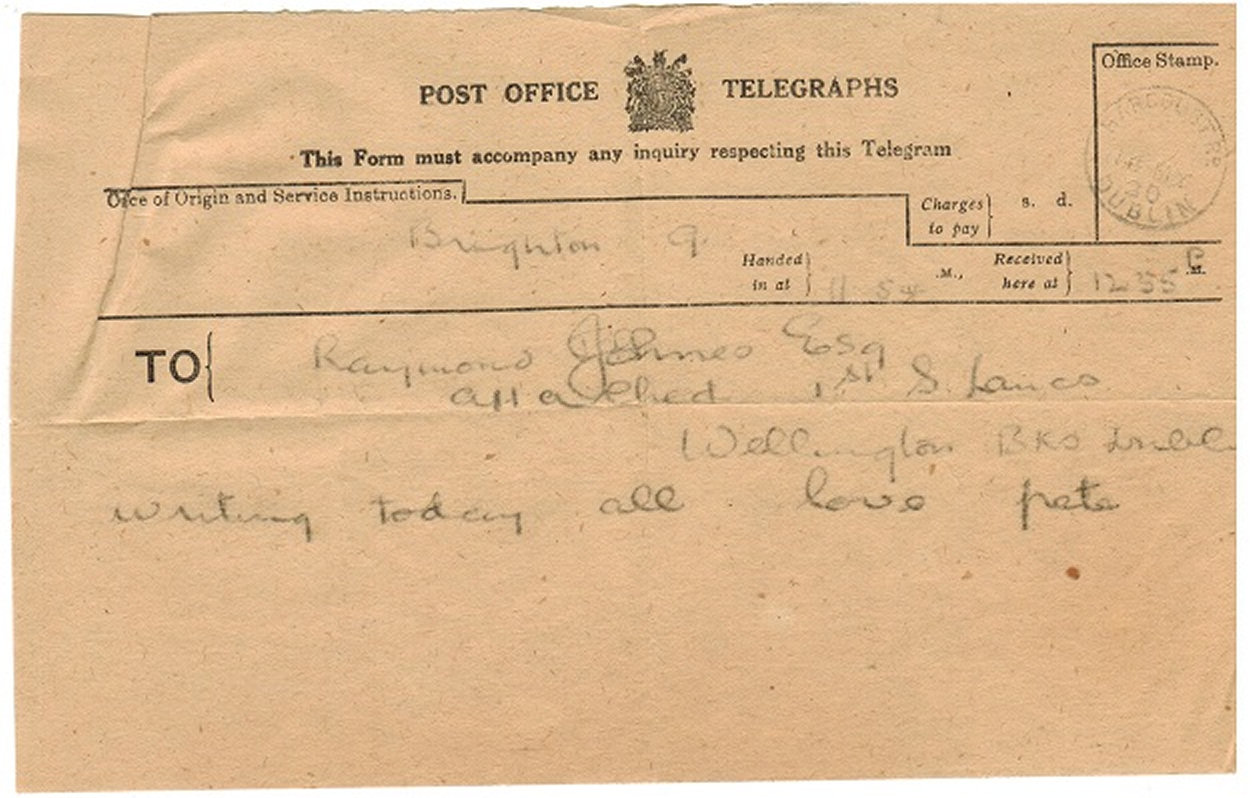 POST OFFICE TELEGRAPHS
Office Stamp.
This Form must accompany any inquiry respecting this Telegram
Office of Origin and Service Instructions.
Charges to pay } s. d.
DUBLIN
Brighton 9
Handed in at } 11 54 .M., Received here at } 12 55 P .M.
TO { Raymond Esq
attached 1st S. Lancs
Wellington BKS Dubli
writing today all love pete